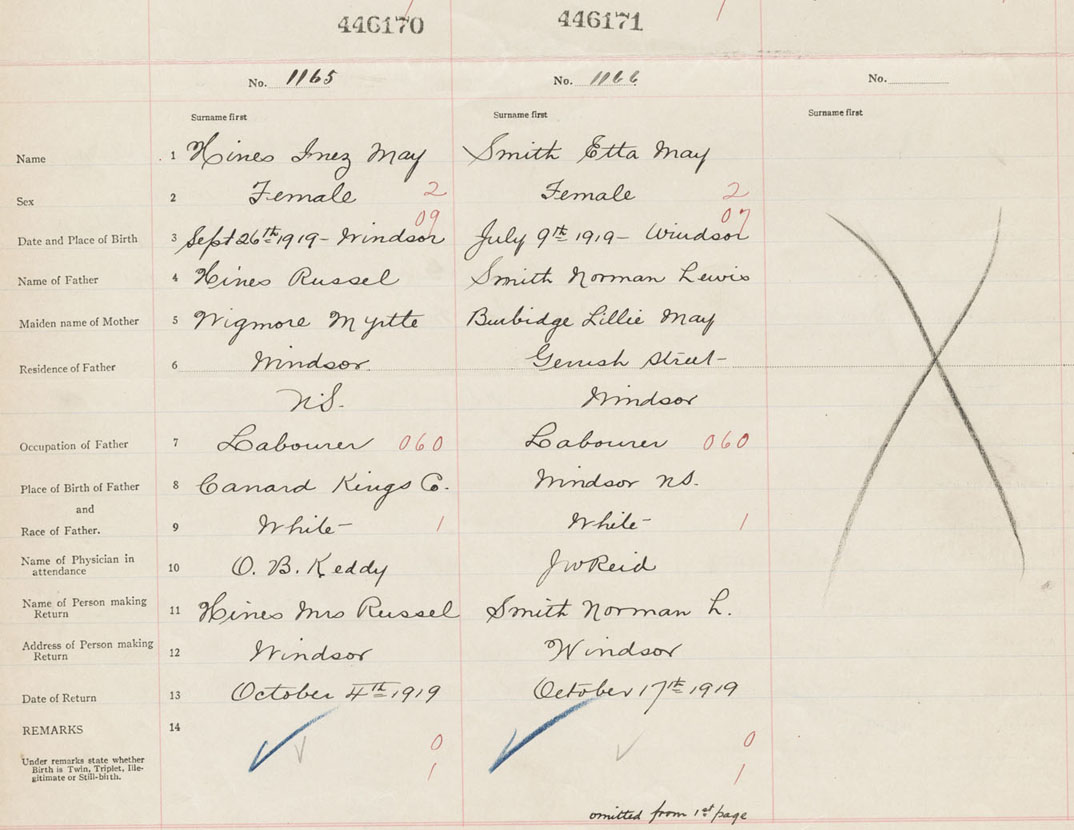 446170 446171
No. 1165 No. 1166 No.
Surname first Surname first Surname first
Name 1 Hines Inez May Smith Etta May
Sex 2 Female 2 Female 2
09 07
Date and Place of Birth 3 Sept 26th 1919 - Windsor July 9th 1919 - Windsor
Name of Father 4 Hines Russel Smith Norman Lewis
Maiden name of Mother 5 Wigmore Myrtle Burbidge Lillie May
Residence of Father 6 Windsor Street
N.S. Windsor
Occupation of Father 7 Labourer 060 Labourer 060
Place of Birth of Father 8 Canard Kings Co. Windsor N.S.
and
Race of Father. 9 White - 1 White - 1
Name of Physician in
attendance 10 O. B. Keddy J W Reid
Name of Person making
Return 11 Hines Mrs Russel Smith Norman L.
Address of Person making
Return 12 Windsor Windsor
Date of Return 13 October 4th 1919 October 17th 1919
REMARKS 14
0 0
Under remarks state whether
Birth is Twin, Triplet, Ille-
gitimate or Still-birth. 1 1
omitted from 1st page